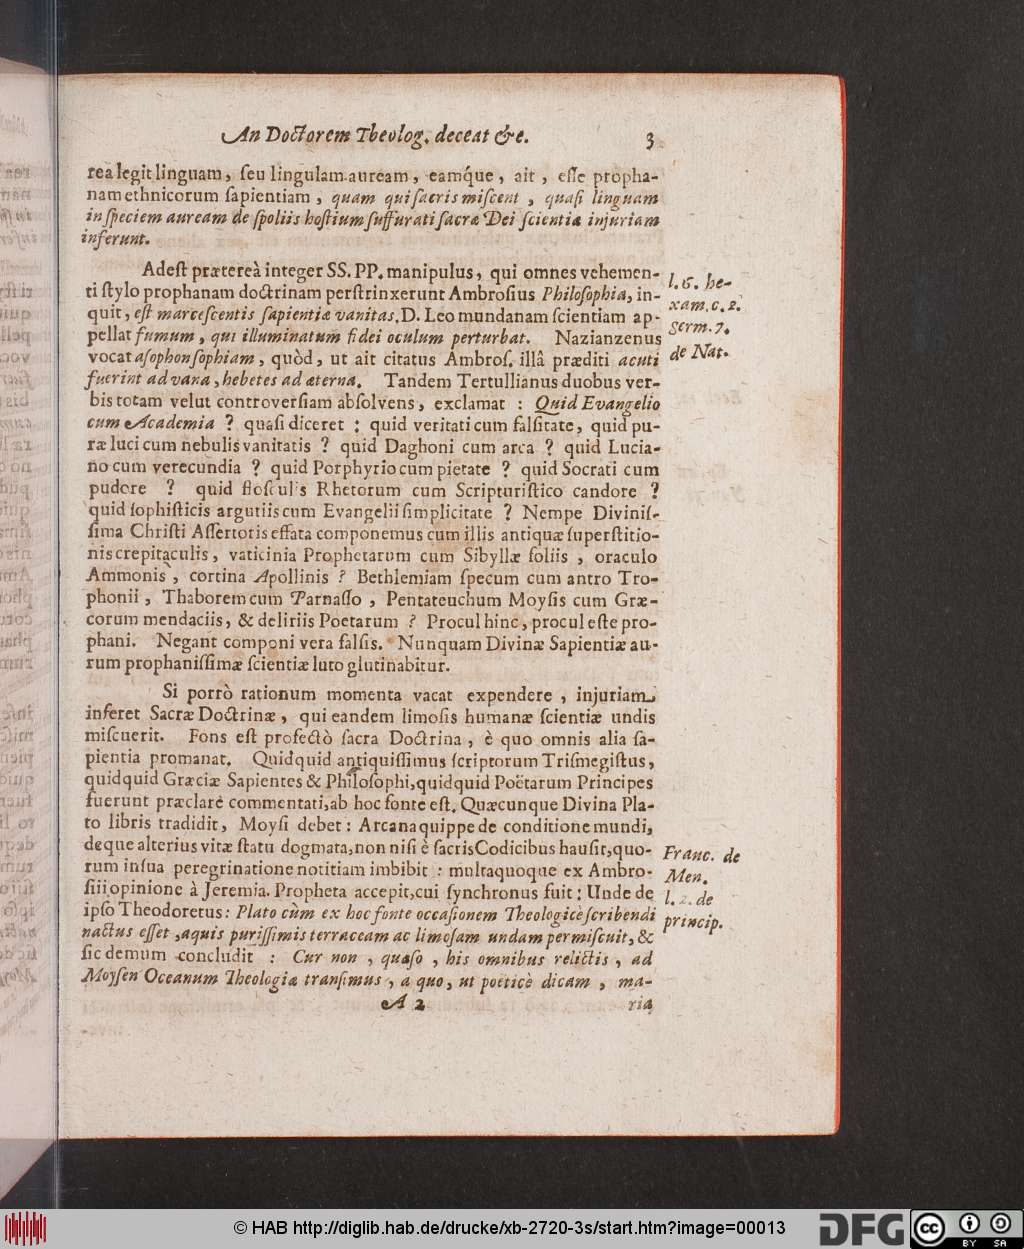 An Doctorem Theolog. deceat &c. 3
rea legit linguam, ſeu lingulam auream, eamq́ue, ait, eſſe propha-
nam ethnicorum ſapientiam, quam qui ſacris miſcent, quaſi linguam
in ſpeciem auream de ſpoliis hoſtium ſuffurati ſacræ Dei ſcientiæ injuriam
inferunt.
Adeſt prætereà integer SS. PP. manipulus, qui omnes vehemen-
ti ſtylo prophanam doctrinam perſtrinxerunt Ambroſius Philoſophia, in-
quit, eſt marceſcentis ſapientiæ vanitas. D. Leo mundanam ſcientiam ap-
pellat fumum, qui illuminatum fidei oculum perturbat. Nazianzenus
vocat aſophonſophiam, quòd, ut ait citatus Ambroſ. illâ præditi acuti
fuerint ad vana, hebetes ad æterna. Tandem Tertullianus duobus ver-
bis totam velut controverſiam abſolvens, exclamat : Quid Evangelio
cum Academia ? quaſi diceret : quid veritati cum falſitate, quid pu-
ræ luci cum nebulis vanitatis ? quid Daghoni cum arca ? quid Lucia-
no cum verecundia ? quid Porphyrio cum pietate ? quid Socrati cum
pudore ? quid floſculis Rhetorum cum Scripturiſtico candore ?
quid ſophiſticis argutiis cum Evangelii ſimplicitate ? Nempe Diviniſ-
ſima Chriſti Aſſertoris effata componemus cum illis antiquæ ſuperſtitio-
nis crepitaculis, vaticinia Prophetarum cum Sibyllæ foliis, oraculo
Ammonis, cortina Apollinis ? Bethlemiam ſpecum cum antro Tro-
phonii, Thaborem cum Parnaſſo, Pentateuchum Moyſis cum Græ-
corum mendaciis, & deliriis Poetarum ? Procul hinc, procul eſte pro-
phani. Negant componi vera falſis. Nunquam Divinæ Sapientiæ au-
rum prophaniſſimæ ſcientiæ luto glutinabitur.
Si porrò rationum momenta vacat expendere, injuriam
inferet Sacræ Doctrinæ, qui eandem limoſis humanæ ſcientiæ undis
miſcuerit. Fons eſt profectò ſacra Doctrina, è quo omnis alia ſa-
pientia promanat. Quidquid antiquiſſimus ſcriptorum Triſmegiſtus,
quidquid Græciæ Sapientes & Philoſophi, quidquid Poëtarum Principes
fuerunt præclarè commentati, ab hoc fonte eſt. Quæcunque Divina Pla-
to libris tradidit, Moyſi debet : Arcana quippe de conditione mundi,
deque alterius vitæ ſtatu dogmata, non niſi è ſacris Codicibus hauſit, quo-
rum in ſua peregrinatione notitiam imbibit : multaquoque ex Ambro-
ſiii opinione à Jeremia. Propheta accepit, cui ſynchronus fuit : Unde de
ipſo Theodoretus : Plato cùm ex hoc fonte occaſionem Theologicè ſcribendi
nactus eſſet, aquis puriſſimis terraceam ac limoſam undam permiſcuit, &
ſic demum concludit : Cur non, quæſo, his omnibus relictis, ad
Moyſen Oceanum Theologiæ tranſimus, a quo, ut poëticè dicam, ma-
A 2 ria
l. 6. he-
xam. c. 2.
Serm. 7.
de Nat.
Franc. de
Men.
l. 2. de
princip.
© HAB http://diglib.hab.de/drucke/xb-2720-3s/start.htm?image=00013
DFG
cc
BY SA